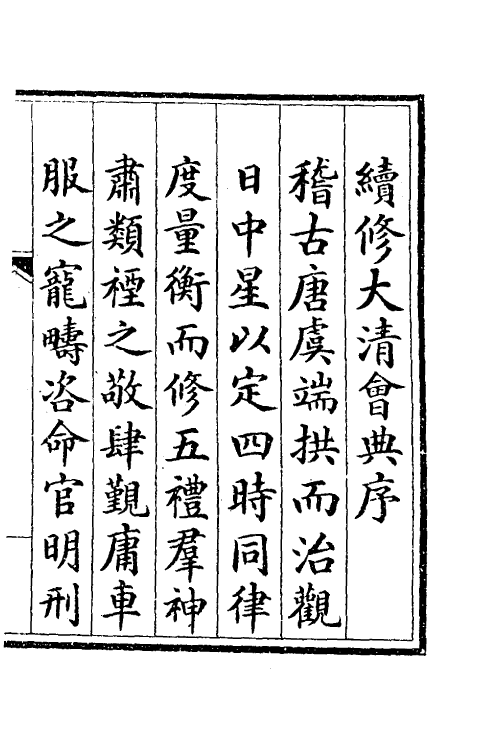 續修大清會典序
稽古唐虞端拱而治觀
日中星以定四時同律
度量衡而修五禮羣神
肅類禋之敬肆覲庸車
服之寵疇咨命官明刑